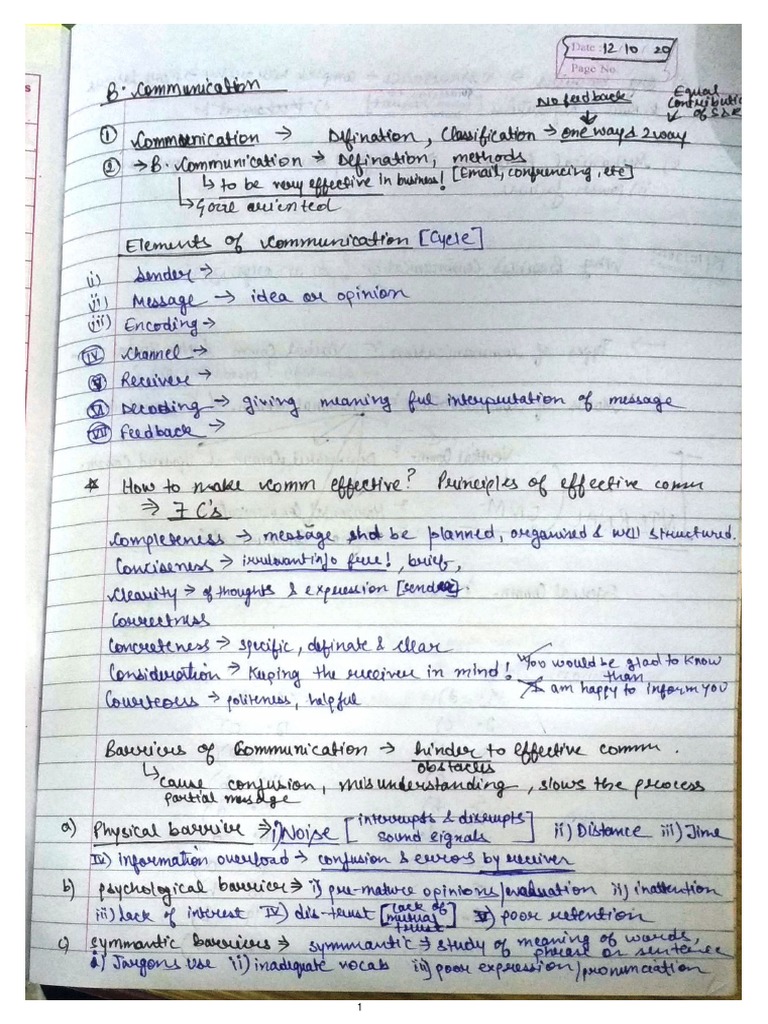 Date : 12/10/20
Page No.
B. Communication
No feedback
Equal Contributi of S & R
① Communication → Defination, Classification → one way & 2 way
② → B. Communication → Defination, methods
↳ to be very effective in business! [Email, confrencing, etc]
↳ Goal oriented
Elements of Communication [Cycle]
(i) Sender →
(ii) Message → idea or opinion
(iii) Encoding →
(IV) Channel →
(V) Receiver →
(VI) Decoding → giving meaning ful interpretation of message
(VII) feedback →
* How to make comm effective? Principles of effective comm
⇒ 7 C's
Completeness → message shd be planned, organised & well structured.
Conciseness → irrelevant info free!, brief,
Clearity → of thoughts & expression [sender].
Correctness
Concreteness → specific, definate & clear
Consideration → Keeping the receiver in mind!
You would be glad to know
than
I am happy to inform you
Courteous → politeness, helpful
Barriers of Communication → hinder to effective comm.
obstacles
↳ cause confusion, misunderstanding, slows the process
partial message
a) Physical barrier → i) Noise [interrupts & disrupts sound signals] ii) Distance iii) Time
IV) information overload → confusion & errors by receiver
b) psychological barrier → i) pre-mature opinions/evaluation ii) inattention
iii) lack of interest IV) dis-trust [lack of mutual trust] V) poor retention
c) Symmantic barriers → symmantic → study of meaning of words, phrase or sentence
i) Jargons use ii) inadequate vocab iii) poor expression/pronunciation
1